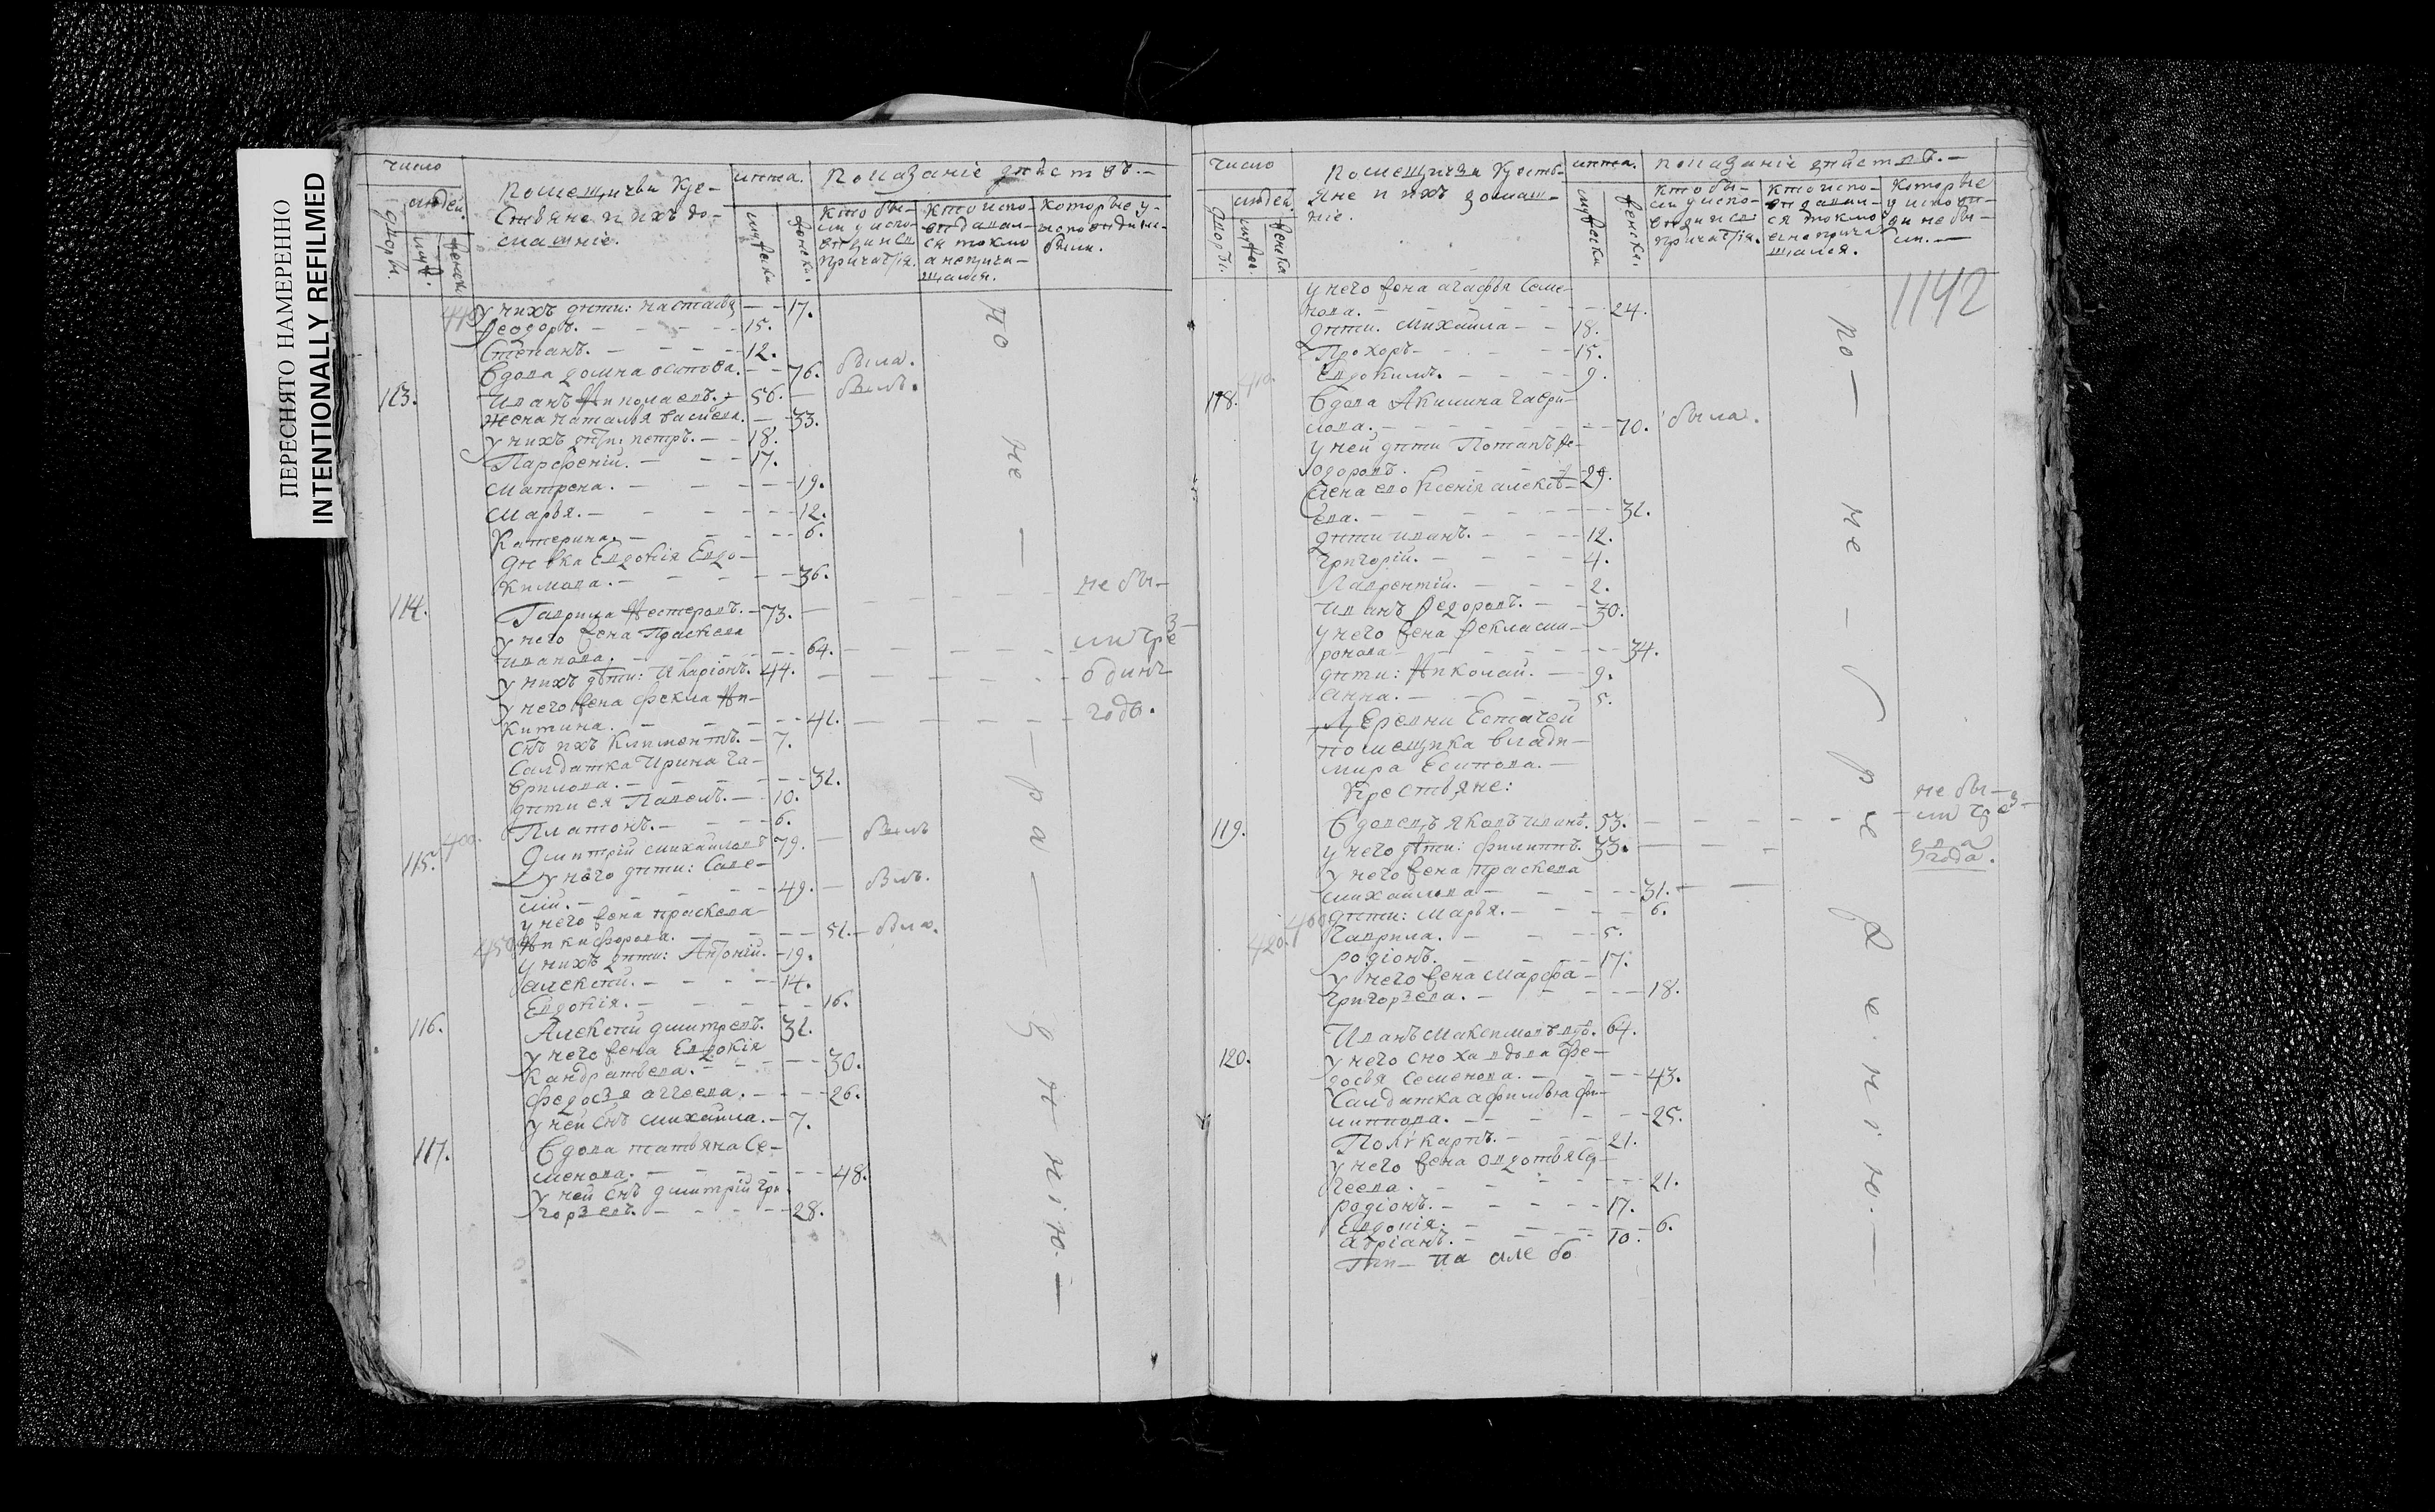 ПЕРЕСНЯТО НАМЕРЕННО
INTENTIONALLY REFILMED
число
людей.
двор.
муж.
женск.
Помещичьи Кре-
стьяне и ихъ до-
машніе.
лѣта.
мужески
женски.
Показаніе дѣйствъ.
кто бы-
ли у испо-
вѣди и св.
причастія.
кто испо-
вѣдался
токмо
а неприча-
щался.
которые у
исповѣди не-
были.
у нихъ дѣти: Настасья — — 17.
Феодоръ. — — — 15.
Степанъ. — — — 12.
Вдова Домна Осипова. — — 76. была.
113. Иванъ Николаевъ. — 56. — былъ.
Жена Наталья Васильева. — — 33.
у нихъ дѣти: Петръ. — — 18.
Парфеній. — — — 17.
Матрена. — — — 19.
Марья. — — — 12.
Катерина. — — — 6.
Дѣвка Евдокія Евдо-
кимова. — — — 36.
114. Гаврила Нестеровъ. — 73. — не бы-
у него жена Праскева
Иванова. — — — 64. — ли чрез
у нихъ дѣти: Иларіонъ. 44. — одинъ
у него жена Фекла Ни-
китина. — — — 41. — годъ.
Снъ ихъ Климентъ. — 7.
Салдатка Ирина Га-
врилова. — — — 31.
дѣти ея Павелъ. — 10.
Платонъ. — — — 6.
115. Дмитрій Михайловъ 79. — былъ
у него дѣти: Саве-
лій. — — — 49. — былъ.
у него жена Праскева
Никифорова. — — — 51. — была.
у нихъ дѣти: Антоній. — 19.
Алексѣй. — — — 14.
Евдокія. — — — 16.
116. Алексѣй Дмитревъ. 31.
у него жена Евдокія
Кандратьева. — — — 30.
Федосья Аггеева. — — — 26.
у ней снъ Михайла. — 7.
117. Вдова Татьяна Се-
менова. — — — 48.
у ней снъ Дмитрій Гри-
горьевъ. — — — 28.
по — не — ра — дѣнію. —
число
людей.
дворы.
муж.
женска
Помещичьи Кресть-
яне и ихъ домаш-
ніе.
лѣта.
мужески
женски.
Показаніе дѣйствъ. —
кто бы-
ли у испо-
вѣди и св.
причастія.
кто испо-
вѣдал-
ся токмо
а неприча-
щался.
Которые
у испові-
ди не бы-
ли. —
1142
у него жена Агафья Семе-
нова. — — — 24.
дѣти. Михайла — — 18.
Прохоръ — — — 15.
Евдокимъ. — — — 9.
118. Вдова Акилина Гаври-
лова. — — — 70. была.
у ней дѣти Потапъ Фе-
одоровъ. — 29.
Жена его Ксенія Алексѣ-
ева. — — — 31.
дѣти Иванъ. — — — 12.
Григорій. — — — 4.
Лаврентій. — — — 2.
Иванъ Федоровъ. — — 30.
у него жена Фекла Ми-
ронова — — — 34.
дѣти: Николай. — — 9.
Анна. — — — 5.
Деревни
помещика Влади-
мира Есипова. —
Крестьяне:
119. Вдовецъ Яковъ Иванъ. 53. — не бы-
ли чрез
у него дѣти: Филиппъ. 33. —
два
года.
у него жена Праскева
Михайлова — — — 31. —
дѣти: Марья. — — — 6.
Гаврила. — — — 5.
Родіонъ. — — — 17.
у него жена Марфа
Григорьева. — — — 18.
120. Иванъ Максимовъ вдо. 64.
у него сноха вдова Фе-
досья Семенова. — — — 43.
Салдатка Афимья Фи-
липпова. — — — 25.
Поликарпъ. — — — 21.
у него жена Авдотья Сер-
геева. — — — 21.
Родіонъ. — — — 17.
Евдокія. — — — 6.
Адріанъ. — — — 10.
по — не — бре — же. нію. —